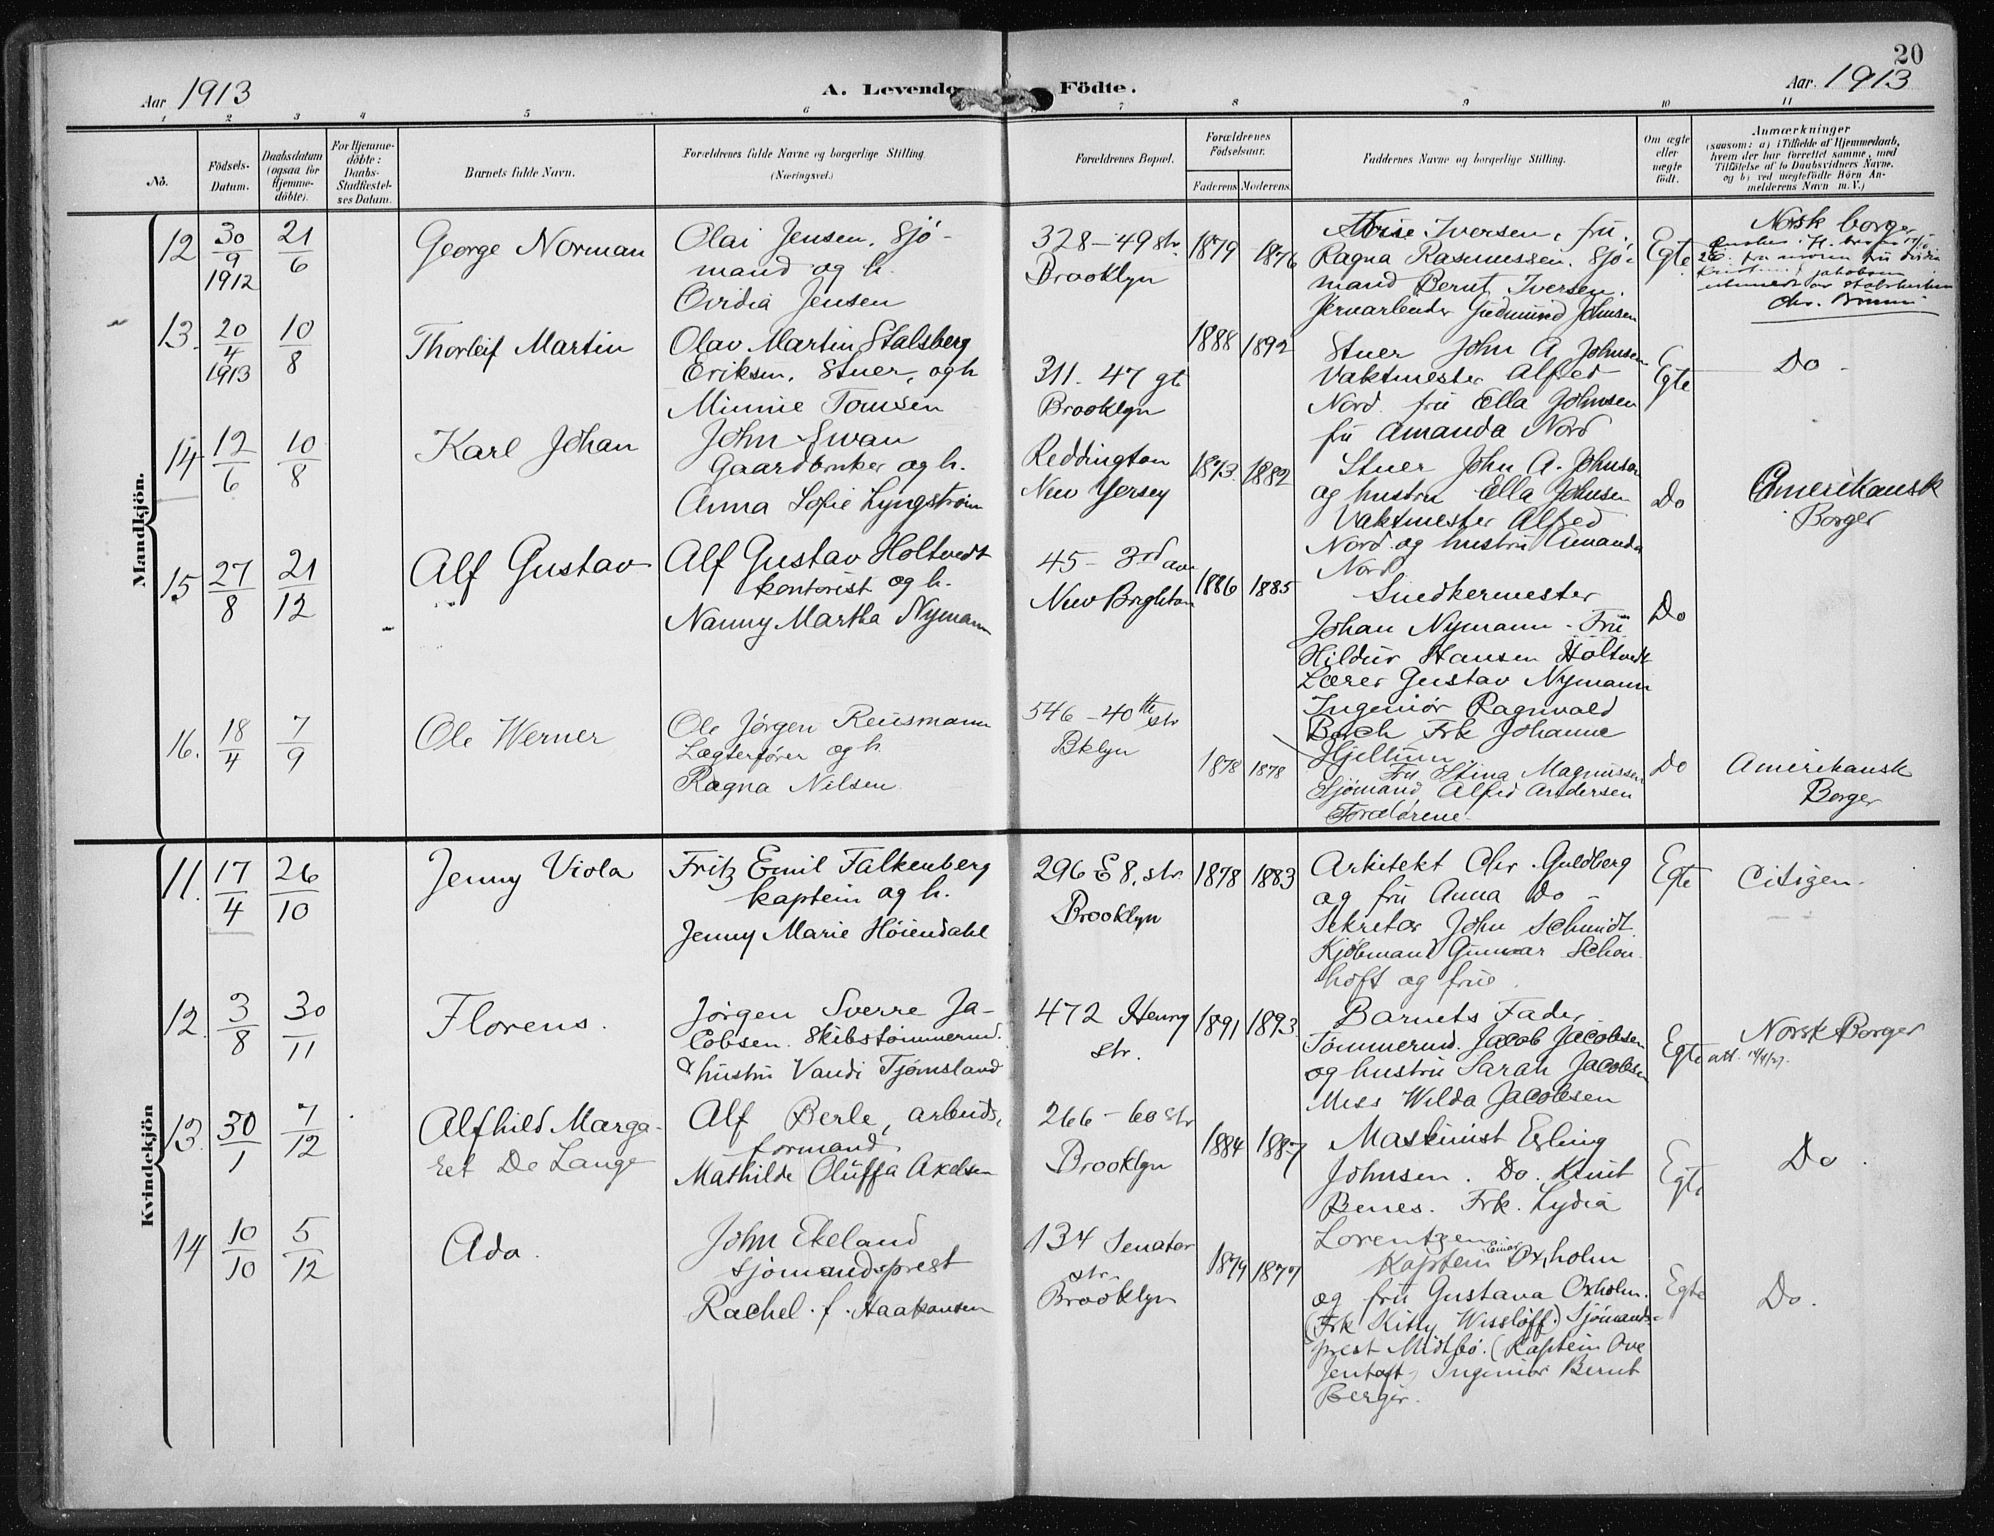 20
Aar 1913
A. Levende Födte.
Aar. 1913
1 2 3 4 5 6 7 8 9 10 11
No.
Födsels-
Datum.
Daabsdatum
(ogsaa for
Hjemme-
döbte).
For Hjemme-
döbte:
Daabs-
Stadfæstel-
ses Datum.
Barnets fulde Navn.
Forældrenes fulde Navne og borgerlige Stilling.
(Næringsvei.)
Forældrenes Bopæl.
Forældrenes
Födselsaar.
Faderens Moderens.
Faddernes Navne og borgerlige Stilling.
Om ægte
eller
uægte
födt.
Anmærkninger
(saasom: a) i Tilfælde af Hjemmedaab,
hvem der har forrettet samme, med
Tilföielse af to Daabsvidners Navne.
og b) ved uegtefödte Börn An-
melderens Navn m. V.)
Mandkjön.
12
30/9
1912
21/6
George Norman
Olai Jensen, Sjö-
mand og h.
Ovidia Jensen
328 – 49 str.
Brooklyn
1879 1876
Iversen, fru,
Ragna Rasmussen. Sjö-
mand Bernt Iversen.
Jernarbeider Gudmund Johnsen
Egte
Norsk borger
13.
20/4
1913
10/8
Thorleif Martin
Olav Martin Stalsberg
Eriksen, Stuer, og h
Minnie Tomsen
311. 47 gt
Brooklyn
1888 1892
Stuer John A Johnsen
Vaktmester Alfred
Nord. fru Ella Johnsen
fu Amanda Nord
Egte
Do
14
12/6
10/8
Karl Johan
John Swan
Gaardbruker og h.
Anna Sofie Lyngstrøm
Reddington
New Yersey
1873. 1882
Stuer John A. Johnson
og hustru Ella Johnsen
Vaktmester Alfred
Nord og hustru Amanda
Nord
Do
Amerikansk
Borger
15
27/8
21/12
Alf Gustav
Alf Gustav Holtvedt
kontorist og h.
Nanny Martha Nymann
45 – 3rd av
New Brighton
1886 1885
Snedkermester
Johan Nymann – Fru
Hildur Hansen Holtvedt
Lærer Gustav Nymann
Ingeniør Ragnvald
Bach Frk Johanne
Hjeltum
Do
16.
18/4
7/9
Ole Werner
Ole Jørgen Reusmann
Lægterfører og h.
Ragna Nilsen
546 – 40th str
Bklyn
1878 1878
Fru Stina Magnussen
Sjømand Alfred Andersen
Forældrene
Do
Amerikansk
Borger
Kvindekjön
11.
17/4
26/10
Jenny Viola
Fritz Emil Falkenberg
kaptein og h.
Jenny Marie Høiendahl
296 E 8. str.
Brooklyn
1878 1883
Arkitekt Chr. Guldberg
og fru Anna Do –
Sekretær John Schmidt
Kjöbmand Gunnar Schou
hoft og frue.
Egte
Citizen.
12.
3/8
30/11
Florens.
Jørgen Sverre Ja-
cobsen. Skibstømmermd.
& hustru Vandi Tjømsland
472 Henry
str.
1891 1893
Barnets Fader
Tømmermd. Jacob Jacobsen
og hustru Sarah Jacobsen
Miss Wilda Jacobsen
Egte
Norsk Borger
att. 14/4/27.
13.
30/1
7/12
Alfhild Marga-
ret De Lange
Alf Berle, arbeids-
formand
Mathilde Oluffa Axelsen
266 – 60 str
Brooklyn
1884 1887
Maskinist Erling
Johnsen. Do. Knut
Benes. Frk. Lydia
Lorentzen.
Egte
Do.
14
10/10
5/12
Ada.
John Ekeland
sjömandsprest
Rachel f. Haakonsen
134 Senator
str.
Brooklyn
1879 1877
Kaptein Einar Oxholm
og fru Gustava Oxholm.
(Frk Kitty Wissløff.) Sjömands-
prest Midtbö. (Kaptein Ove
Jentoft, Ingeniör Bernt
Berger.
Egte
Do.